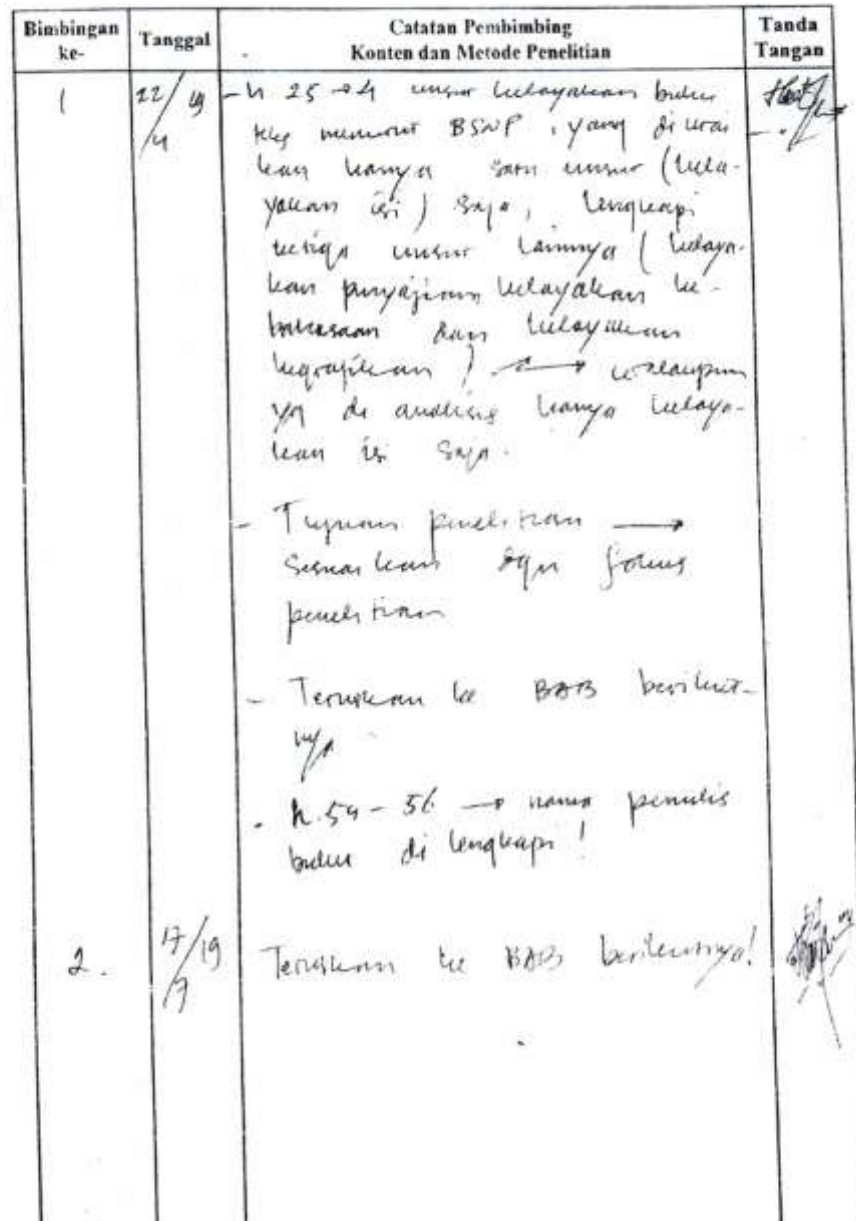 Bimbingan ke-
Tanggal
Catatan Pembimbing
Konten dan Metode Penelitian
Tanda Tangan
1
22/4 19
- h 25 → 4 unsur kelayakan buku
teks menurut BSNP, yang diurai
kan hanya satu unsur (kela-
yakan isi) saja, lengkapi
ketiga unsur lainnya (kelaya-
kan penyajian kelayakan ke-
bahasaan dan kelayakan
kegrafikan) → walaupun
yg di analisis hanya kelaya-
kan isi saja.
- Tujuan penelitian →
sesuaikan dgn fokus
penelitian
- Teruskan ke BAB berikut-
nya
- h.54 - 56 → nama penulis
buku di lengkapi!
2.
17/7 19
Teruskan ke BAB berikutnya!